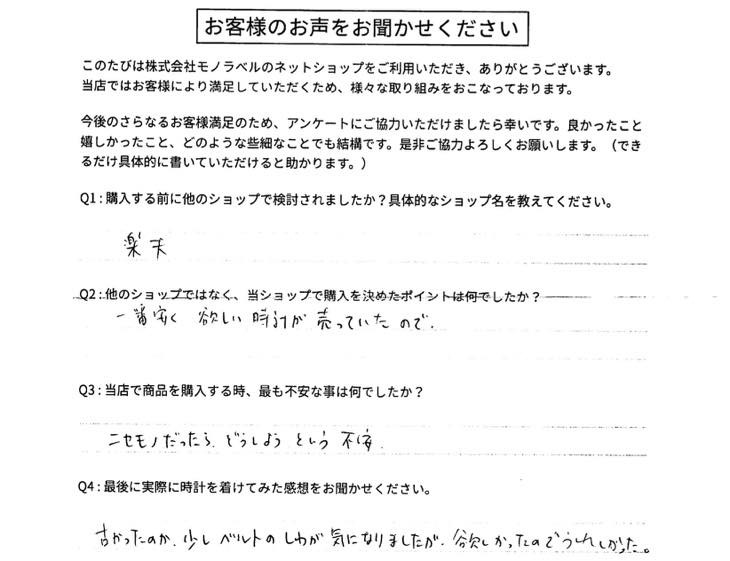 お客様のお声をお聞かせください
このたびは株式会社モノラベルのネットショップをご利用いただき、ありがとうございます。
当店ではお客様により満足していただくため、様々な取り組みをおこなっております。
今後のさらなるお客様満足のため、アンケートにご協力いただけましたら幸いです。良かったこと
嬉しかったこと、どのような些細なことでも結構です。是非ご協力よろしくお願いします。（でき
るだけ具体的に書いていただけると助かります。）
Q1：購入する前に他のショップで検討されましたか？具体的なショップ名を教えてください。
楽天
Q2：他のショップではなく、当ショップで購入を決めたポイントは何でしたか？
一番安く 欲しい 時計が 売っていた ので.
Q3：当店で商品を購入する時、最も不安な事は何でしたか？
ニセモノだったら、どうしよう という 不安.
Q4：最後に実際に時計を着けてみた感想をお聞かせください。
古かったのか、少し ベルトの しわが 気になりましたが、欲しかったのでうれしかった。